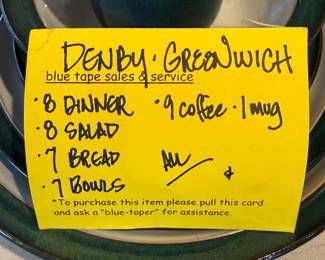 DENBY · GREENWICH
blue tape sales & service
· 8 DINNER · 9 coffee · 1 mug
· 8 SALAD
· 7 BREAD
· 7 BOWLS
*To purchase this item please pull this card
and ask a "blue-taper" for assistance.